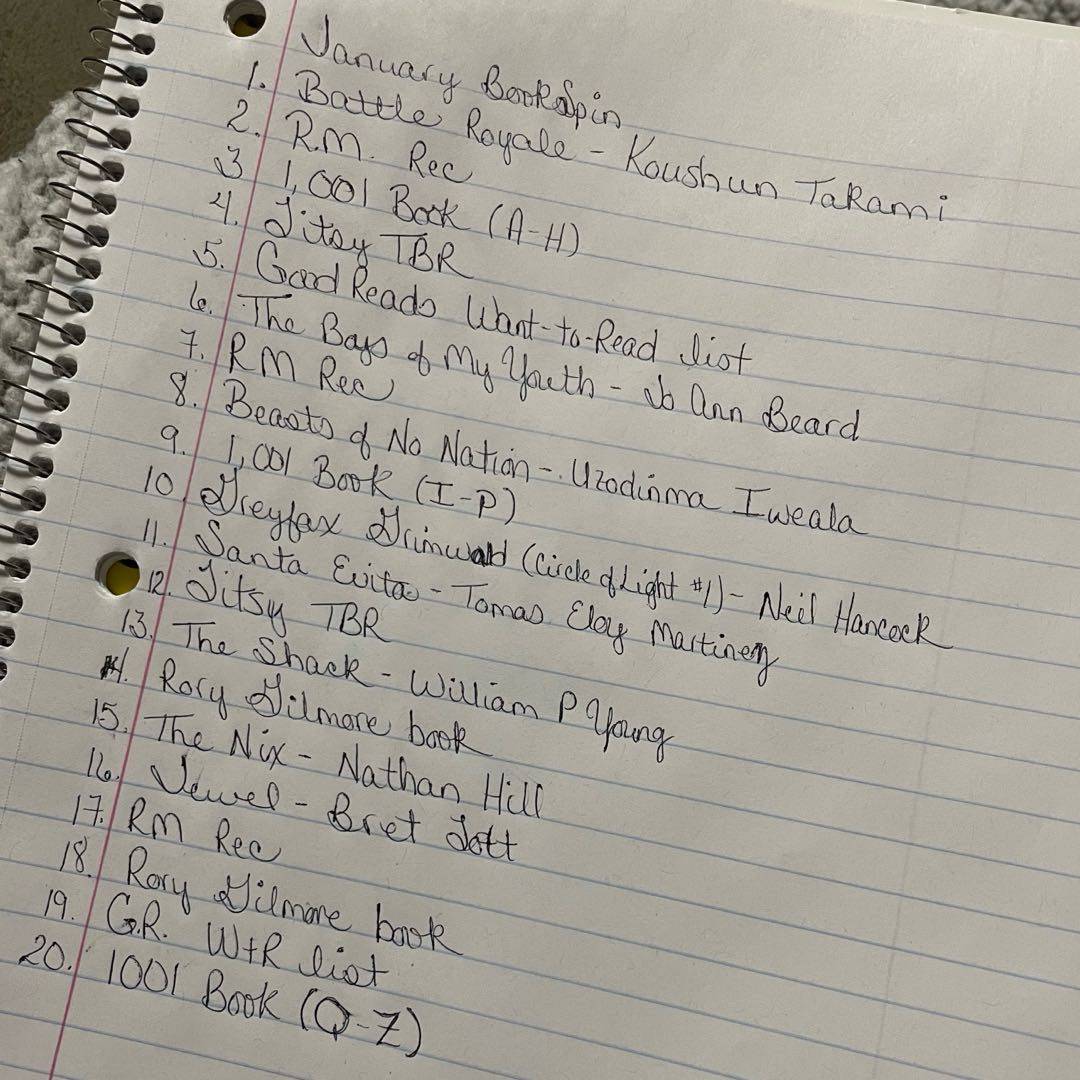 January BookSpin
1. Battle Royale - Koushun Takami
2. R.M. Rec
3 1,001 Book (A-H)
4. Litsy TBR
5. Good Reads Want-to-Read list
6. The Boys of My Youth - Jo Ann Beard
7. RM Rec
8. Beasts of No Nation - Uzodinma Iweala
9. 1,001 Book (I-P)
10. Greyfax Grimwald (Circle of Light #1) - Neil Hancock
11. Santa Evita - Tomas Eloy Martinez
12. Litsy TBR
13. The Shack - William P Young
14. Rory Gilmore book
15. The Nix - Nathan Hill
16. Jewel - Bret Lott
17. RM Rec
18. Rory Gilmore book
19. G.R. WtR list
20. 1001 Book (Q-Z)